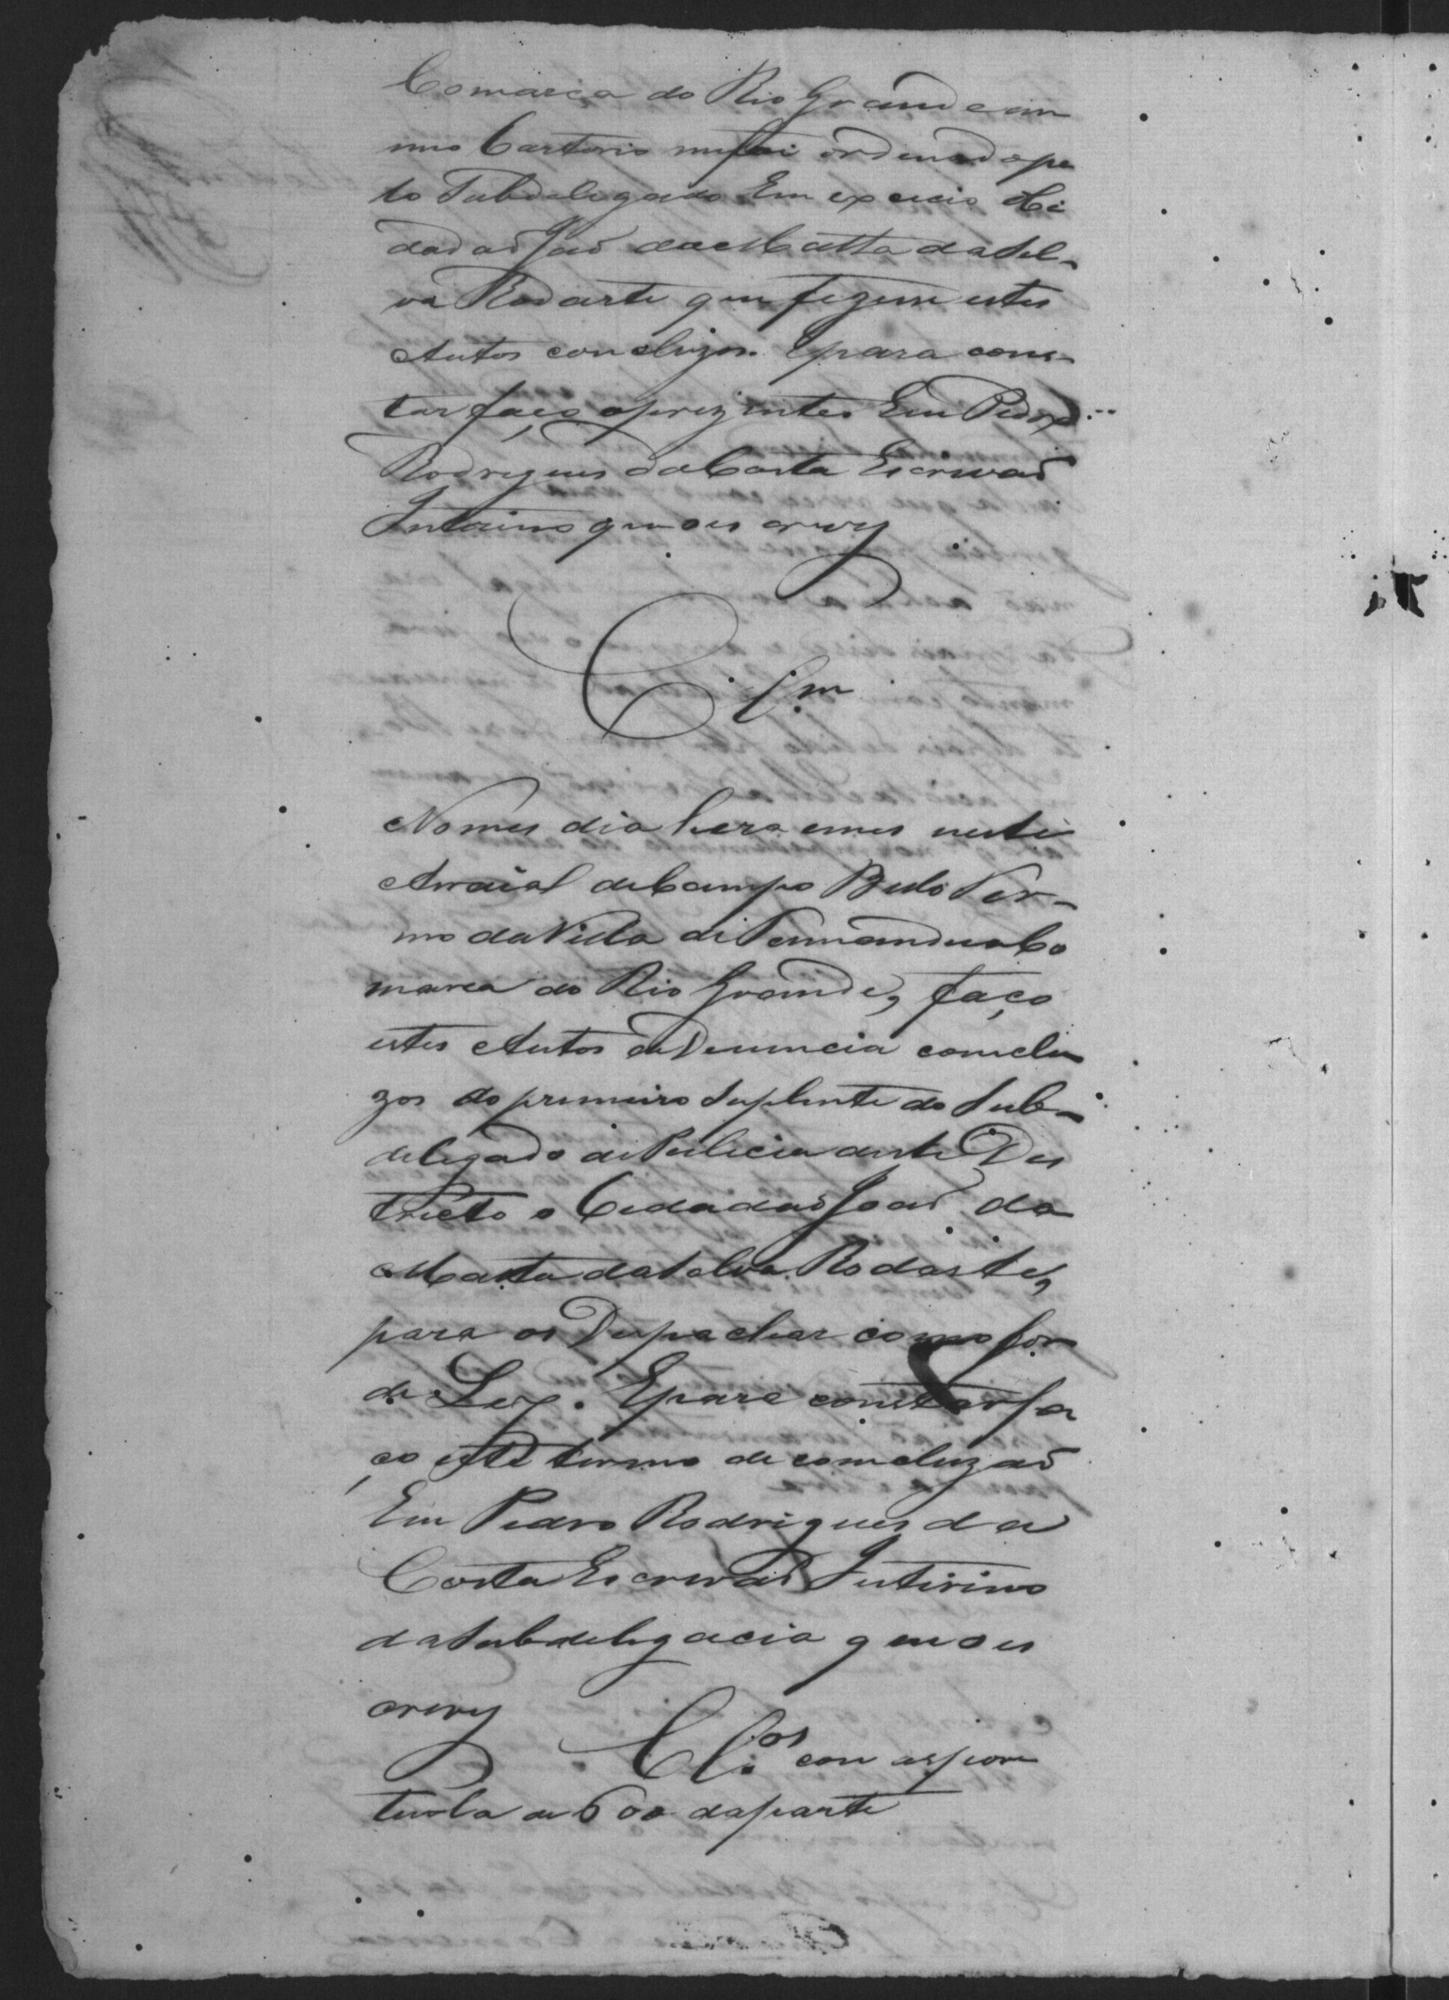 Comarca do Rio Grande em
meo Cartorio me foi ordenado pe
lo Subdelegado Em exercicio Ci
dadaõ Joaõ da Matta da Sel-
va Rodarte que fizesse estes
Autos concluzos. E para cons-
tar faço o prezentes Eu Pedro
Rodrigues da Costa Escrivaõ
Interino que o es crevy
No mes dia hera emes neste
Arraial de Campo Bello Ter-
mo da Villa de Tamanduá Co
marca do Rio Grande, faço
estes Autos de Denuncia conclu
zos ao primeiro Suplente do Sub-
delegado de Policia deste Des
tricto o Cidadaõ Joaõ da
Matta da Selva Rodarte,
para os Despachar como for
de Ley. E para constar fa
ço este termo de concluzaõ
Eu Pedro Rodrigues da
Costa Escrivaõ Interino
da Subdelegacia que o es
crevy
Cl.os com aspor
tula de 600 da parte